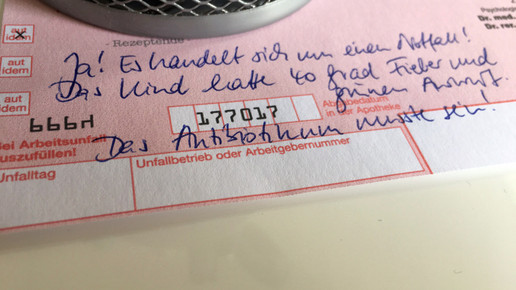 aut
idem
- Rezeptende -
Psychologis
Dr. med.
Dr. rer.
Ja! Es handelt sich um einen Notfall!
aut
idem
Das Kind hatte 40 grad Fieber und
grünen Auswurf.
aut
idem
666H
177017
Abgabedatum
in der Apotheke
Das Antibiotikum musste sein!
Bei Arbeitsunfall
auszufüllen!
Unfalltag
Unfallbetrieb oder Arbeitgebernummer